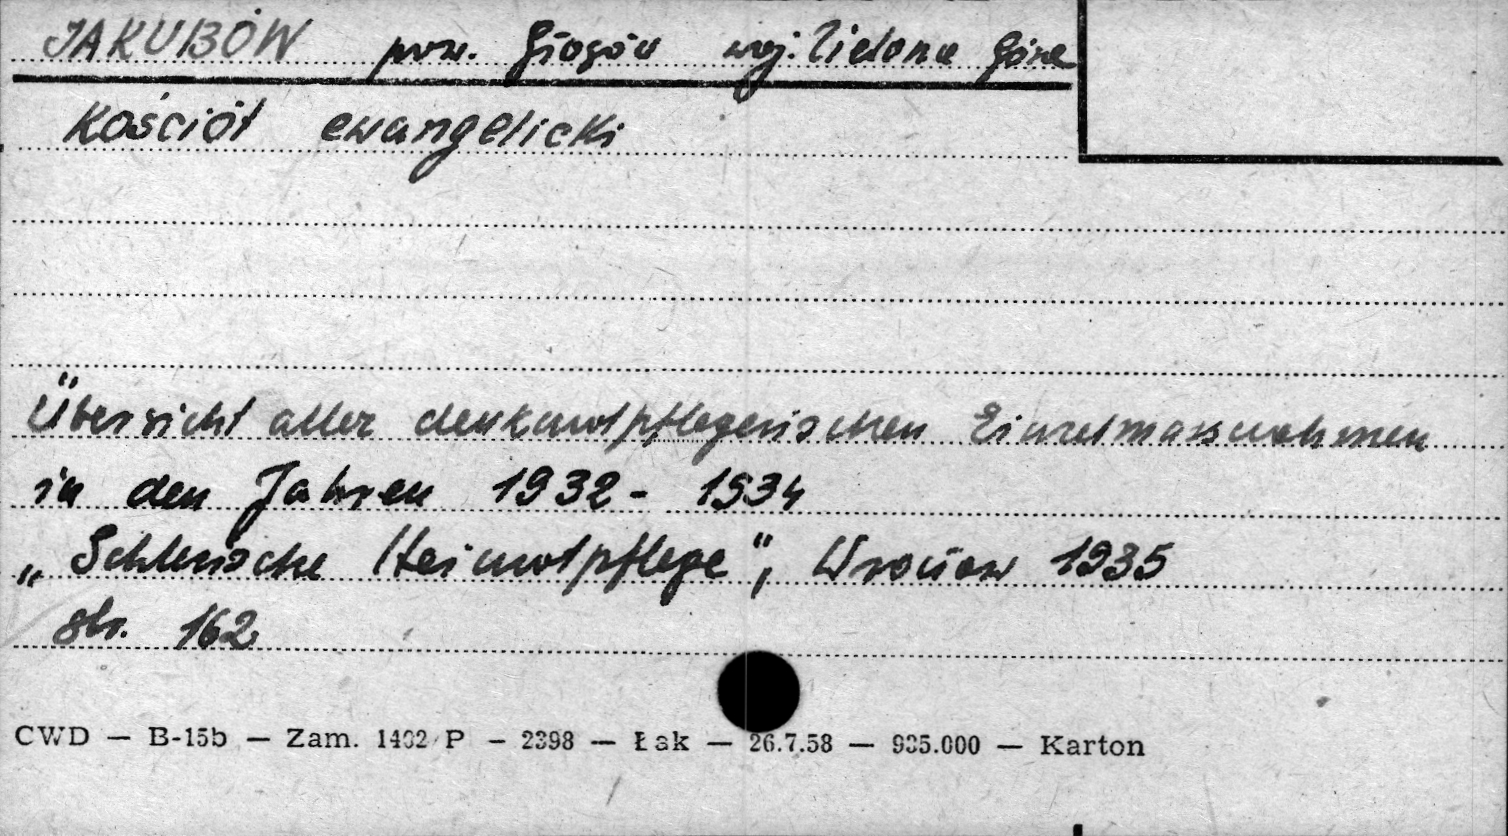 JAKUBÓW pow. Głogów woj. Zielona Góra
Kościół ewangelicki
Übersicht aller denkmalpflegerischen Einzelmassnahmen
in den Jahren 1932 - 1934
„Schlesische Heimatpflege", Wrocław 1935
str. 162
CWD — B-15b — Zam. 1402/P — 2398 — Łak — 26.7.58 — 935.000 — Karton